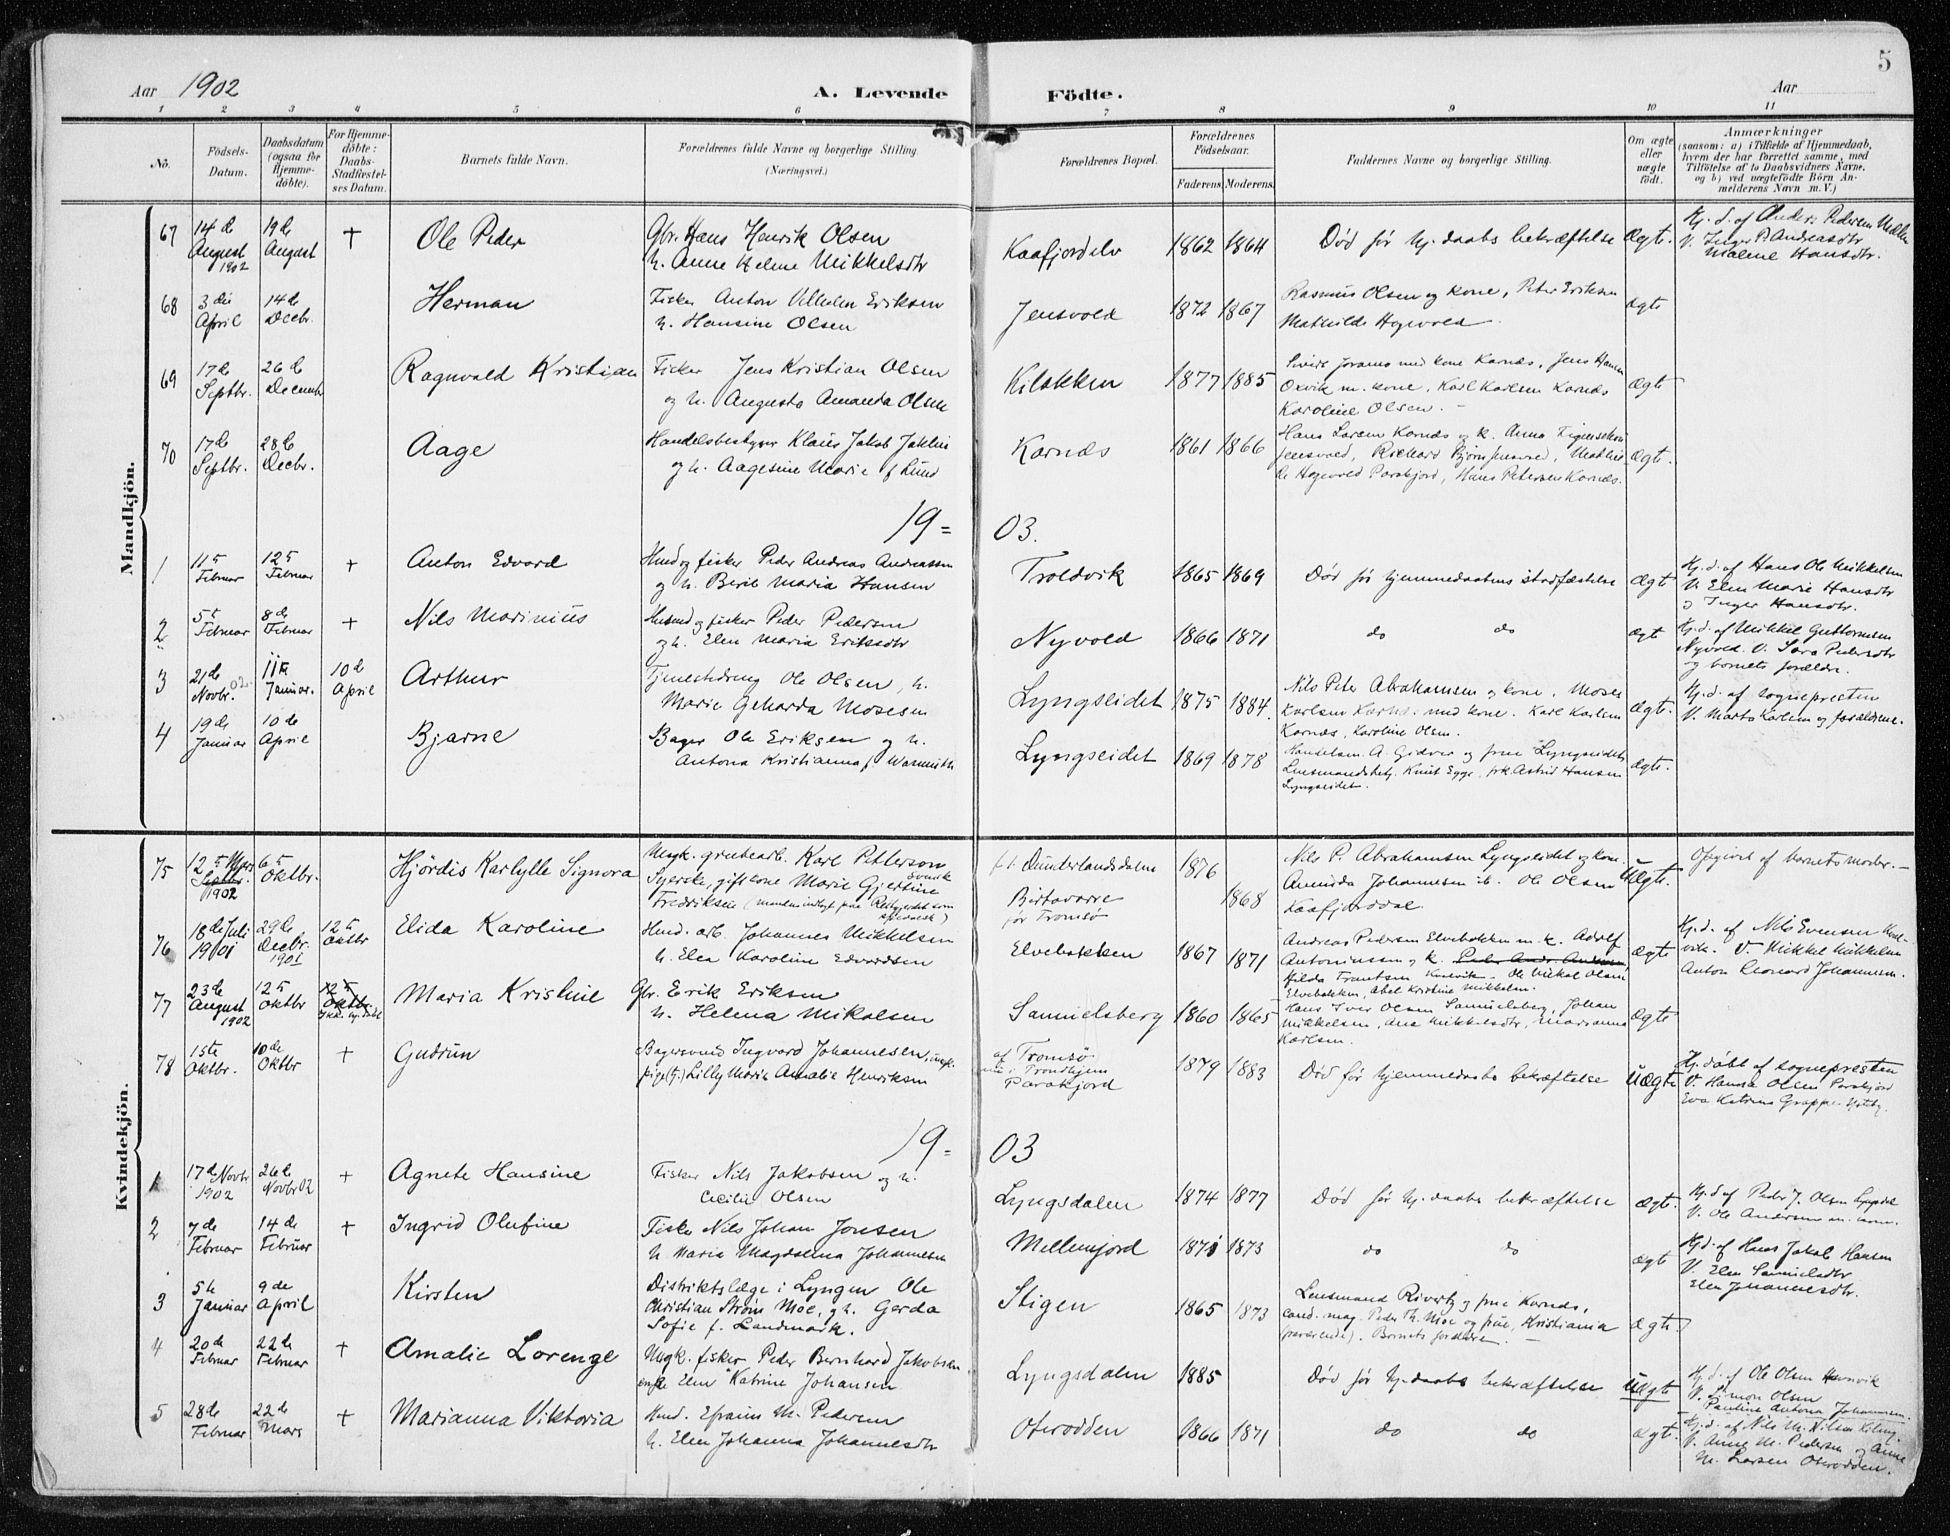 5
Aar 1902
A. Levende Födte.
Aar
1 2 3 4 5 6 7 8 9 10 11
Nö.
Födsels-Datum.
Daabsdatum (ogsaa for Hjemme-döbte).
For Hjemme-döbte: Daabs-Stadfæstel-ses Datum.
Barnets fulde Navn.
Forældrenes fulde Navne og borgerlige Stilling.
(Næringsvei.)
Forældrenes Bopæl.
Forældrenes Födselsaar.
Faderens. Moderens.
Faddernes Navne og borgerlige Stilling.
Om ægte eller uægte födt.
Anmærkninger
(saasom: a) i Tilfælde af Hjemmedaab,
hvem der har forrettet samme, med
Tilföielse af to Daabsvidners Navne,
og b) ved uægtefödte Börn An-
melderens Navn m. V.)
Mandkjön.
67 14de August 1902 19de August + Ole Peder
Gbr. Hans Henrik Olsen
h. Anne Helene Mikkelsdtr
Kaafjordelv 1862 1864 Död før hj.daabs bekræftelse Ægte.
Hj. d. af Anders Pedersen
V. Inger P. Andreasdtr
Malene Hansdtr.
68 3die April 14de Decbr. Herman
Fisker Anton Vilhelm Eriksen
h. Hansine Olsen
Jensvold 1872 1867 Rasmus Olsen og kone, Peter Eriksen
Mathilde Hogvold ægte
69 17de Septbr. 26de Decembr Ragnvald Kristian
Fisker Jens Kristian Olsen
og h. Augusta Amanda Olsen
Kilbakken 1877 1885 med kone Karnæs, Jens Hansen
Oxvik m. kone, Karl Karlsen Karnæs
Karoline Olsen. ægte
70 17de Septbr. 28de Decbr. Aage
Handelsbestyrer Klaus Jakob
og h. Aagesine Marie f Lund
Karnæs 1861 1866 Hans Larsen Karnæs og k. Anna
Jensvold, Richard Jensvold, Mathil-
de Hogvold Parakjord, Hans Petersen Karnæs. ægte.
19= 03.
1 11te Februar 12te Februar + Anton Edvard
Husm og fisker Peder Andreas Andreassen
og h. Berit Maria Hansen
Troldvik 1865 1869 Död før hjemmedaabens stadfæstelse ægte
Hj. d. af Hans Ole Mikkelsen
V. Elen Marie Hansdtr
og Inger Hansdtr.
2 5te Februar 8de Februar + Nils Marinius
Husmd og fisker Peder Pedersen
og h. Elen Maria Eriksdtr
Nyvold 1866 1871 do do ægt
Hj. d. af Mikkel Guttormsen
Nyvold. V. Sara Pedersdtr
og barnets forældre.
3 21de Novbr. 02 11te Januar. 10de April Arthur
Tjenestedreng Ole Olsen, h.
Marie Geharda Mosesen
Lyngseidet 1875 1884. Nils Peter Abrahamsen og kone, Moses
Karlsen Karnæs med kone. Karl Karlsen
Karnæs, Karoline Olsen. ægte.
Hj. d. af sognepresten
V. Marta Karlsen og forældrene.
4 19de Januar 10de April Bjarne
Bager Ole Eriksen og h.
Antona Kristianna f.
Lyngseidet 1869 1878 Handelsm. A. Gidver og frue Lyngseidet,
Lensmandsbetj. Knut Egge, frk. Astrid Hansen
Lyngseidet. ægte.
Kvindekjön.
75 12te Mars Septbr. 1902 6te Oktbr. Hjördis Karhylle Signora
Ungk. grubearb. Karl Petterson svensk
Syerske, gift kone Marie Gjertine
Fredriksen (manden indlagt paa Reitgjerdet som spedalsk)
f.t. Dunderlandsdalen
Birtavarre
før Tromsø 1876 1868 Nils P. Abrahamsen Lyngseidet og kone.
Amanda Johannesen ib. Ole Olsen
Kaafjorddal. Uægte.
Opgivet af barnets moder.—
76 18de Juli 1901 29de Decbr. 1901 12te Oktbr Elida Karoline
Husm. arb. Johannes Mikkelsen
h. Elen Karoline Edvardsen
Elvebakken 1867 1871 Andreas Pedersen Elvebakken m. k. Adolf
Antoniussen og k.
Hilda Frantsen Ole Mikal Olsen
Elvebakken, Abel Kristine Mikkelsen. ægte
Hj. d. af Nils Evensen
V. Mikkel Mikkelsen
Anton Leonard Johannesen.
77 23de August 1902 12te Oktbr 12te Oktbr. Ikke hj.döbt Maria Kristine
Gbr. Erik Eriksen
h. Helena Mikalsen
Samuelsberg 1860 1865 Hans Iver Olsen Samuelsberg, Johan
Mikkelsen, Ana Mikkelsdtr, Marianna
Karlsen. ægte
78 1ste Oktbr. 10de Oktbr + Gudrun
Bagersvend Ingvard Johannesen, ungk.
pige(tj.) Lilly Marie Amalie Henriksen
af Tromsø
nu i Trondhjem
Parakjord 1879 1883 Död før hjemmedaabs bekræftelse Uægte
Hj. döbt af sognepresten
V. Hansa Olsen Parakjord
Eva Katrine Grape
19= 03
1 17de Novbr 1902 26de Novbr 02 + Agnete Hansine
Fisker Nils Jakobsen og h.
Cecilie Olsen
Lyngsdalen 1874 1877 Död før hj.daabs bekræftelse ægte.
Hj. d. af Peder J. Olsen Lyngsdal
V. Ole Andersen m. kone.
2 7de Februar 14de Februar + Ingrid Olufine
Fisker Nils Johan Jonsen
h. Maria Magdalena Johannesen
Mellemjord 1871 1873 do do ægte
Hj. d. af Hans Jakob Hansen
V. Elen Samuelsdtr
Elen Johannesdtr.
3 5te Januar 9de April Kirsten
Distriktslæge i Lyngen Ole
Christian Strøm Moe, og h. Gerda
Sofie f. Landmark.
Stigen 1865 1873 Lensmand Rivertz og frue Karnæs,
cand. mag. Peder Th. Moe og frue, Kristiania
(fraværende). Barnets forældre. ægte.
4 20de Februar 22de Februar + Amalie Lorenge
Ungk. fisker Peder Bernhard Jakobsen
pige Elen Katrine Johansen
Lyngsdalen 1885 Död før hj.daabs bekræftelse Uægte
Hj. d. af Ole Olsen Havnvik
V. Simon Olsen
Pauline Antona Johannesen.
5 28de Februar 22de Mars + Marianna Viktoria
Husm. Efraim M. Pedersen
h. Elen Johanna Johannesdtr
Oterodden 1866 1871 do do ægte.
Hj. d. af Nils M. Nilsen
V. Anne M. Pedersen og Anne
M. Larsen Oterodden.